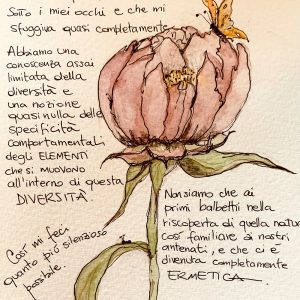 Sotto i miei occhi e che mi
sfuggiva quasi completamente
Abbiamo una
conoscenza assai
limitata della
diversità e
una nozione
quasi nulla delle
specificità
comportamentali
degli ELEMENTI
che si muovono
all'interno di questa
DIVERSITÀ.
Così mi feci
quanto più silenzioso
possibile.
Non siamo che ai
primi balbettii nella
riscoperta di quella natura
così familiare ai nostri
antenati, e che ci è
divenuta completamente
ERMETICA.